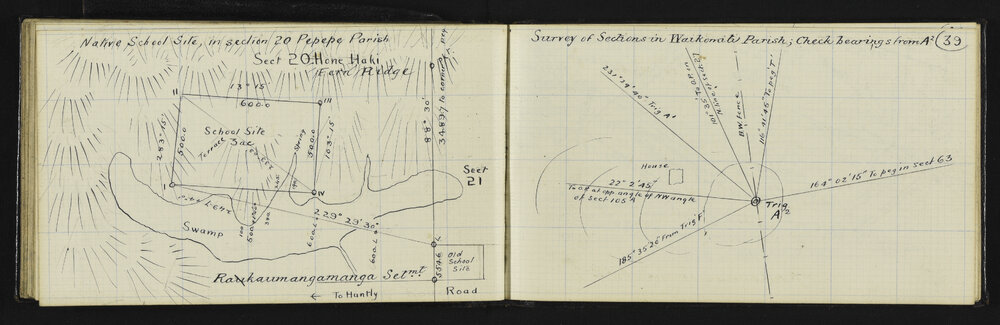 Native School Site, in section 20 Pepepe Parish
Sect 20. Hone Haki
Fern Ridge
II
13° 15'
600.0
III
283° 15'
500.0
School Site
Terrace 3ac
Spring
500.0
103° 15'
88° 30'
3489.7 to corner
I
IV
Sect
21
Swamp
229° 29' 30"
600.7
554.6
Old
School
Site
Raukaumangamanga Setmt
← To Huntly
Road
Survey of Sections in Waikomiti Parish; Check bearings from A²
39
231° 34' 40" Trig A¹
BW fence
116° 41' 45" To peg 'T'
House
22° 2' 45"
To O.P. at opp angle of NW angle
of Sect 105 A
164° 02' 15" To peg in sect 63
Trig
A²
185° 35' 26" From Trig F